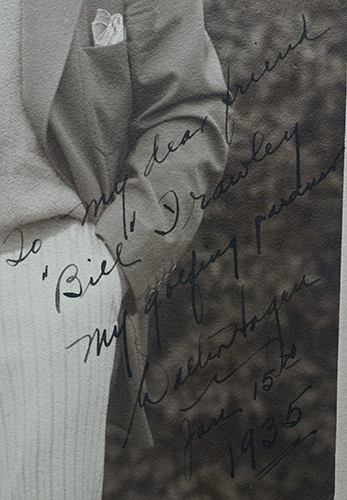 To my dear friend
"Bill" Frawley
my golfing pardner
Walter Hagen
Jan 15th
1935